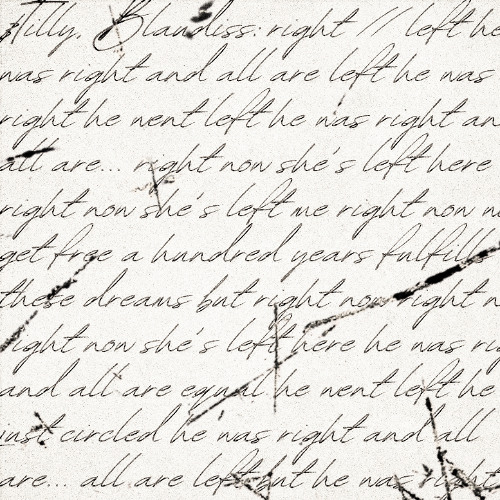 Tilly, Blandiss: right // left he
was right and all are left he was
right he went left he was right an
all are... right now she's left here
right now she's left me right now n
get free a hundred years fulfill
these dreams but right now right n
right now she's left here he was rig
and all are equal he went left he
just circled he was right and all
are... all are left but he was right